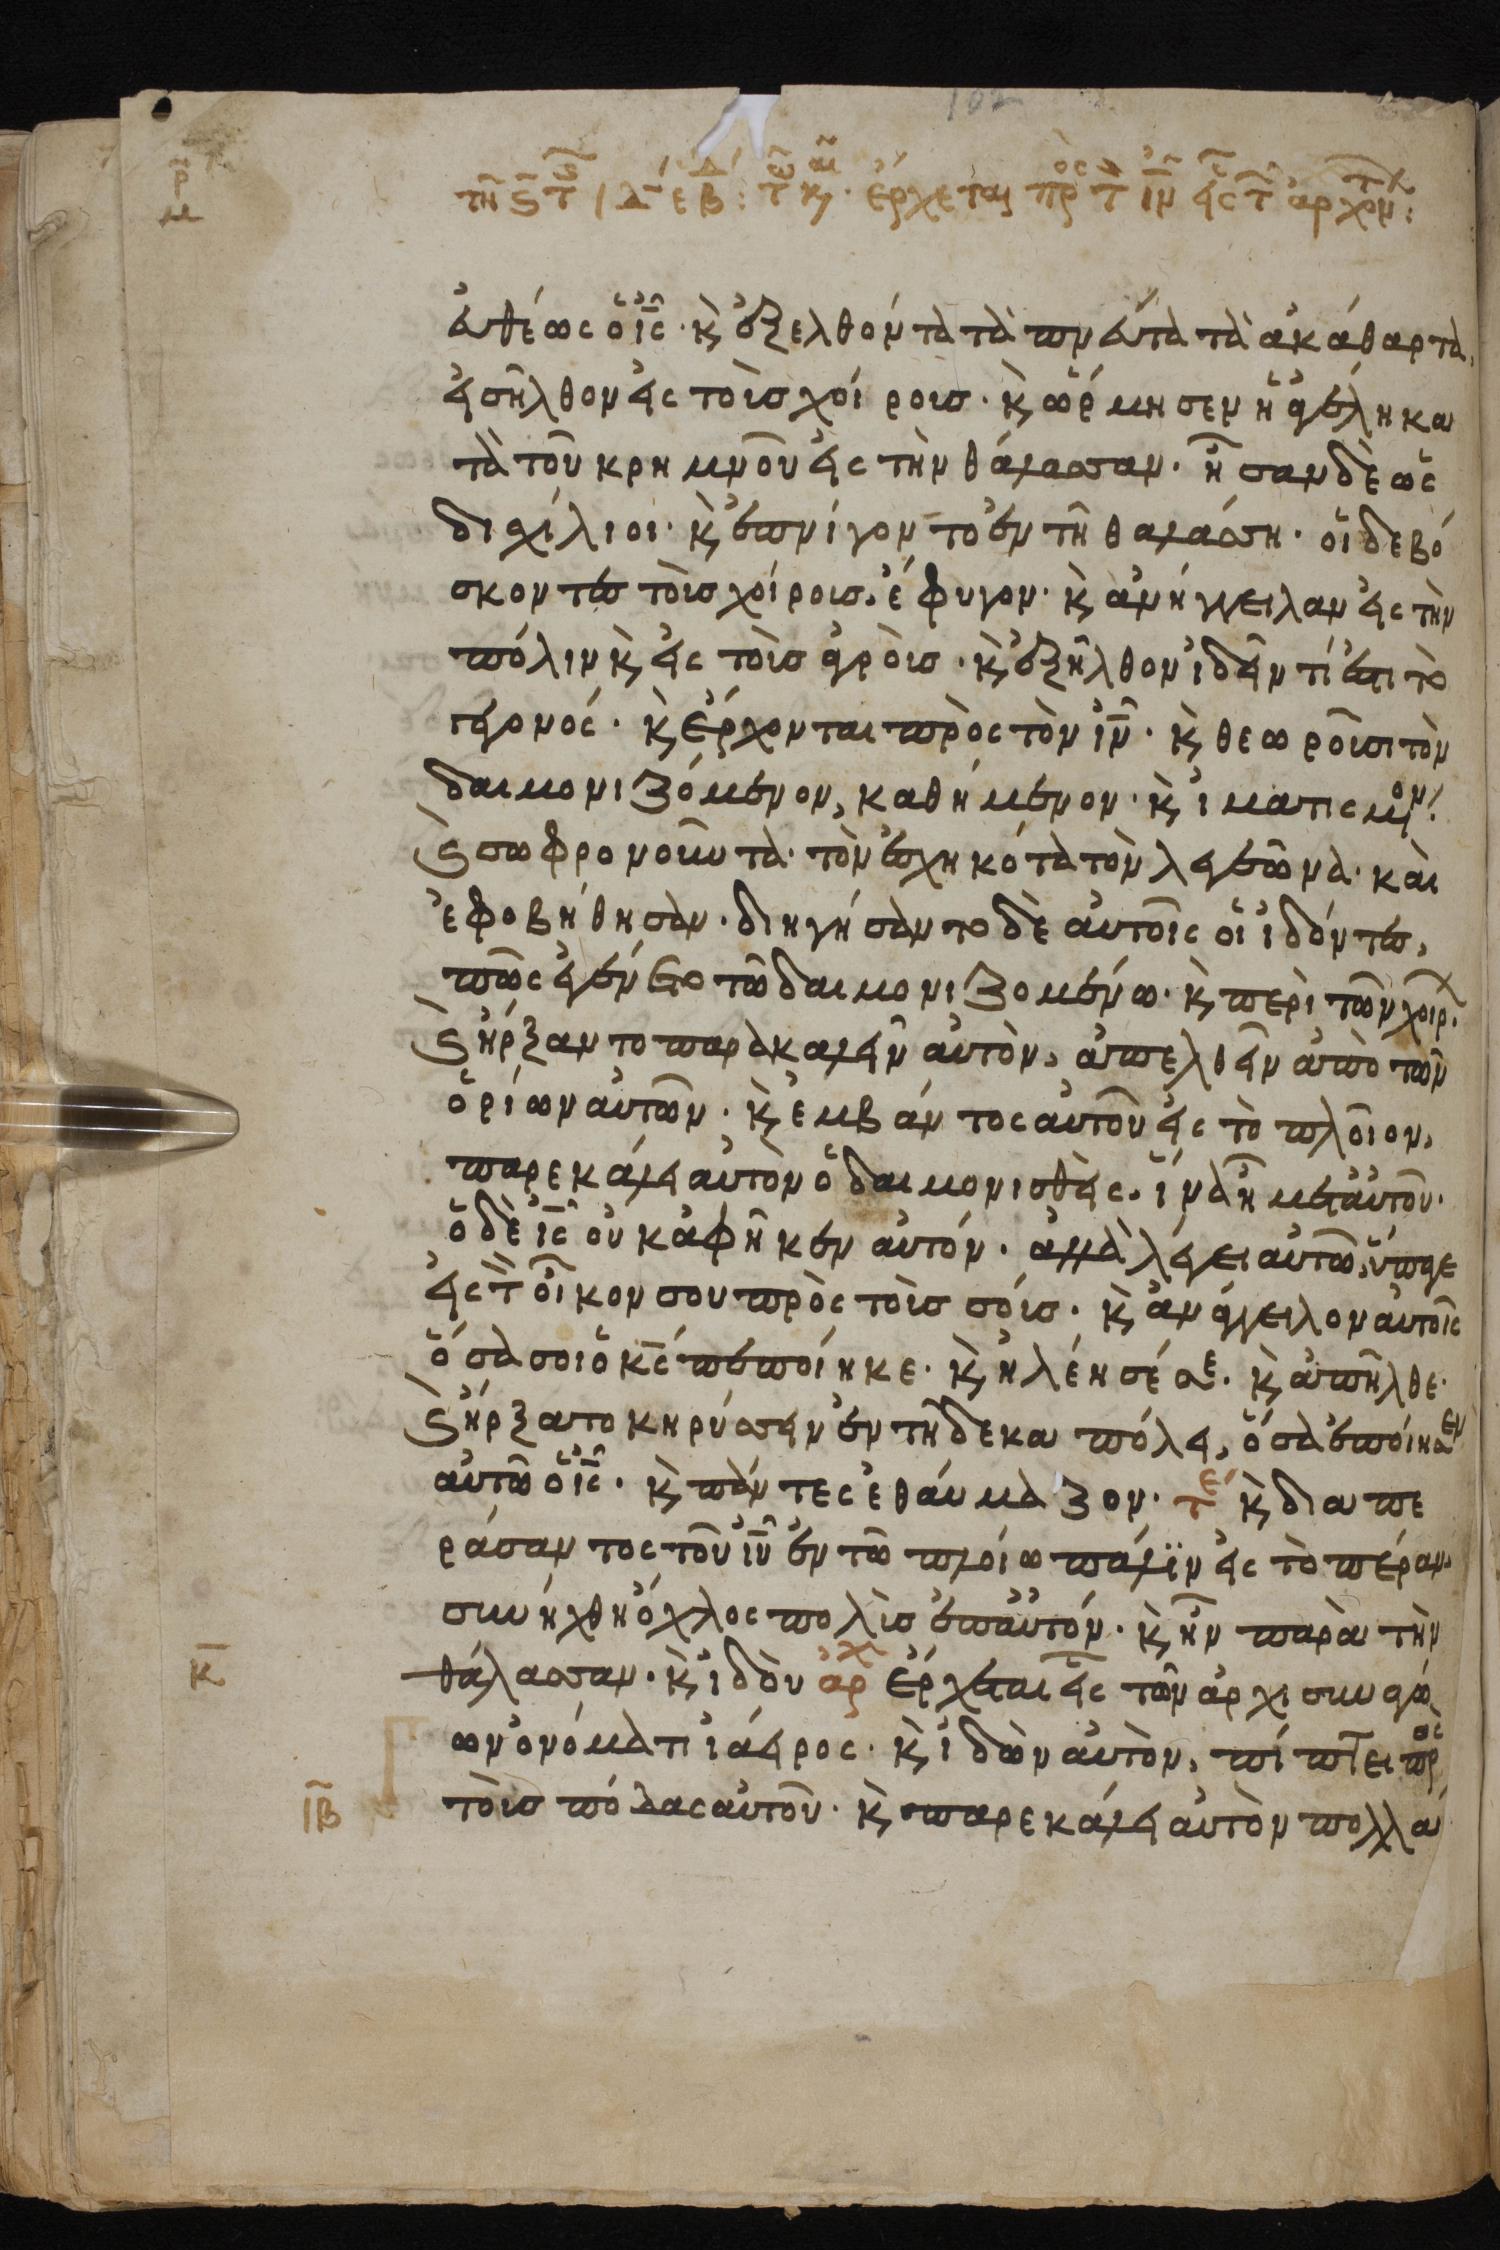 ἔρχεται πρὸς τ ἰν εἷς τ ἀρχοντ:
εὐθέως ὁ ἰς· κ ἐξελθόντα τὰ πνευματα τὰ ἀκάθαρτα,
εἰσῆλθον εἰς τοὺς χοίρους· κ ὥρμησεν ἡ ἀγέλη κα
τὰ τοῦ κρημνοῦ εἰς τὴν θάλασσαν· ἦσαν δὲ ὡς
δισχίλιοι· κ ἐπνίγοντο ἐν τῇ θαλάσση· οἱ δε βό
σκοντες τοὺς χοίρους, ἔφυγον· κ ἀνήγγειλαν εἰς τὴν
πόλιν κ εἰς τοὺς ἀγροὺς· κ ἐξῆλθον ἰδεῖν τί ἐστι τὸ
γεγονός· κ ἔρχονται πρὸς τὸν ἰν· κ θεωροῦσι τὸν
δαιμονιζόμενον, καθήμενον· κ ἱματισμένον·
κ σωφρονοῦντα· τὸν ἐσχηκότα τὸν λεγεῶνα· καὶ
ἐφοβήθησαν· διηγήσαντο δὲ αὐτοῖς οἱ ἰδόντες,
πῶς ἐγένετο τῷ δαιμονιζομένω· κ περὶ τῶν χοίρ·
κ ἤρξαντο παρακαλεῖν αὐτὸν, ἀπελθεῖν ἀπὸ τῶν
ὁρίων αὐτῶν· κ ἐμβάντος αὐτοῦ εἰς τὸ πλοῖον,
παρεκάλει αὐτὸν ὁ δαιμονισθεὶς, ἵνα ἦ μετ' αὐτοῦ·
ὁ δὲ ἰς οὐκ ἀφῆκεν αὐτόν· ἀλλὰ λέγει αὐτῶ, ὕπαγε
εἰς τ οἶκον σου πρὸς τοὺς σούς· κ ἀνάγγειλον αὐτοῖς
ὅσα σοι ὁ κς πεποίηκε· κ ἠλέησέ σε· κ ἀπῆλθε·
κ ἤρξατο κηρύσσειν ἐν τῆ δεκαπόλει, ὅσα ἐποίησεν
αὐτῶ ὁ ἰς· κ πάντες ἐθαύμαζον· τε κ διαπε
ράσαντος τοῦ ἰυ ἐν τῶ πλοίω πάλιν εἰς τὸ πέραν,
συνήχθη ὄχλος πολὺς ἐπ' αὐτόν· κ ἦν παρὰ τὴν
κ θάλασσαν· κ ἰδοὺ ἀρχ ἔρχεται εἷς τῶν ἀρχισυναγώ
ων ὀνόματι ἰάειρος· κ ἰδὼν αὐτὸν, πίπτει πρὸς
ιβ τοὺς πόδας αὐτοῦ· κ παρεκάλει αὐτὸν πολλα